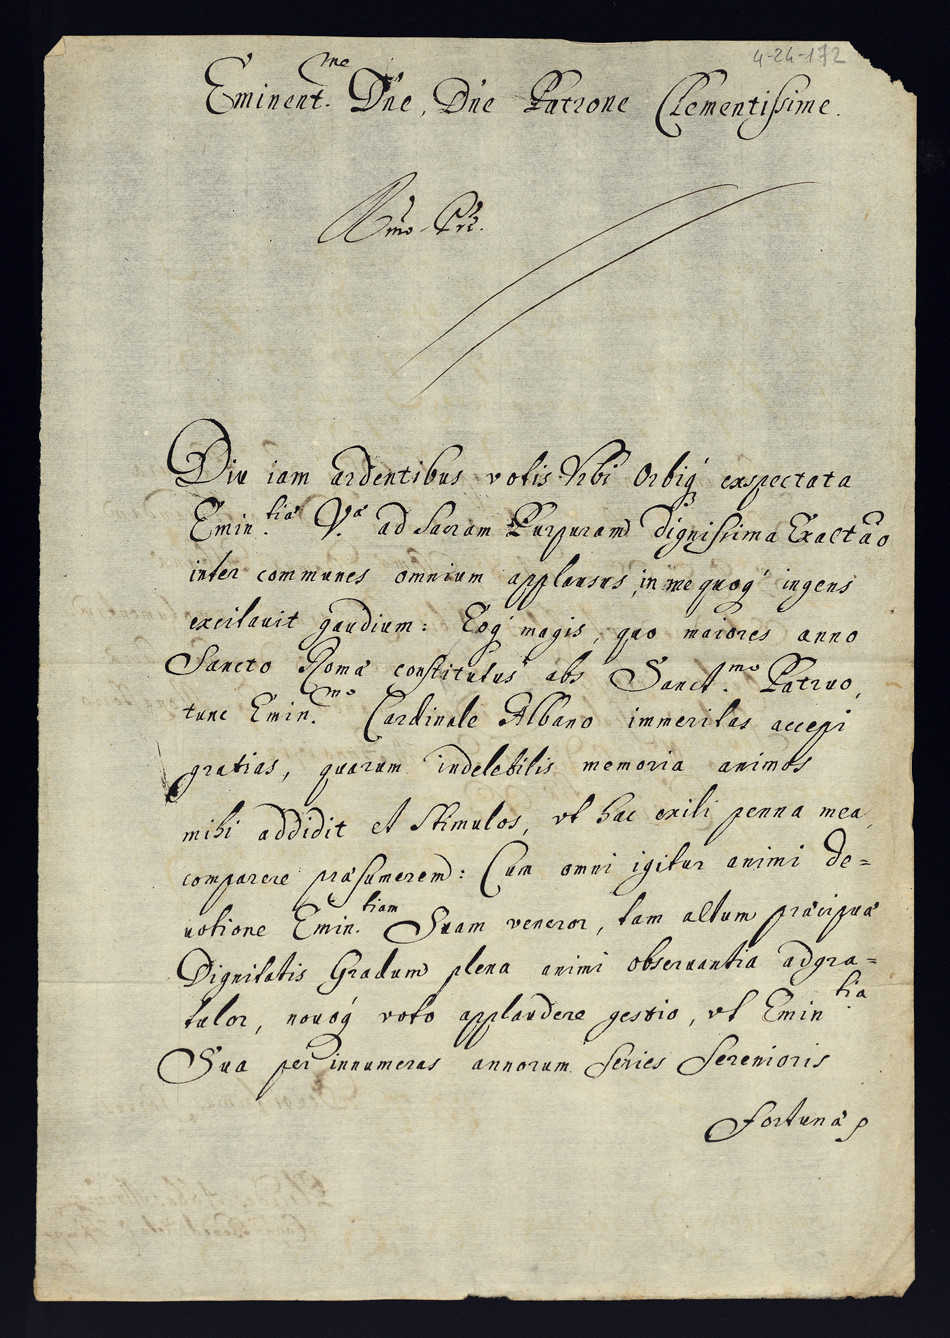 4-24-172
Eminent.me Dne, Dne Patrone Clementissime.
Rmo Pri.
Diu iam ardentibus votis Vrbi Orbiq́ exspectata
Emin.tiæ Væ. ad Sacram Purpuram dignissima Exaltao
inter communes omnium applausus, in me quoq́ ingens
excitauit gaudium: Eoq́ magis, quo maiores anno
Sancto Romæ constitutus abs Sanct.mo Patruo,
tunc Emin.mo Cardinale Albano immeritas accepi
gratias, quarum indelebilis memoria animos
mihi addidit et stimulos, vt hac exili penna mea,
comparere præsumerem: Cum omni igitur animi de=
uotione Emin.tiam Suam veneror, tam altum præcipuæ
Dignitatis Gradum plena animi obseruantia adgra=
tulor, nouóq́ voto applaudere gestio, vt Emintia.
Sua per innumeras annorum series serenioris
Fortunæ p